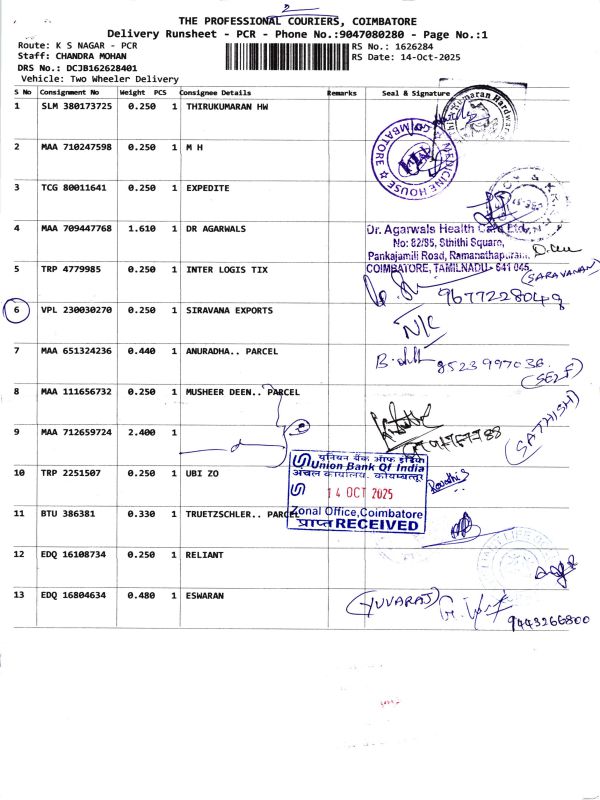 2
THE PROFESSIONAL COURIERS, COIMBATORE
Delivery Runsheet - PCR - Phone No.:9047080280 - Page No.:1
Route: K S NAGAR - PCR
RS No.: 1626284
Staff: CHANDRA MOHAN
RS Date: 14-Oct-2025
DRS No.: DCJB162628401
Vehicle: Two Wheeler Delivery
S No Consignment No Weight PCS Consignee Details Remarks Seal & Signature
1 SLM 380173725 0.250 1 THIRUKUMARAN HW
Kumaran Hardware
2 MAA 710247598 0.250 1 M H
MEDICINE HOUSE
3 TCG 80011641 0.250 1 EXPEDITE
4 MAA 709447768 1.610 1 DR AGARWALS
Dr. Agarwals Health Care Ltd.
No: 82/95, Sthithi Square,
Pankajamili Road, Ramanathapuram,
COIMBATORE, TAMILNADU- 641 045.
5 TRP 4779985 0.250 1 INTER LOGIS TIX
(SARAVANAN)
9677228049
6 VPL 230030270 0.250 1 SIRAVANA EXPORTS
N/C
7 MAA 651324236 0.440 1 ANURADHA.. PARCEL
8523997036
(SELF)
8 MAA 111656732 0.250 1 MUSHEER DEEN.. PARCEL
(SATHISH)
9 MAA 712659724 2.400 1
10 TRP 2251507 0.250 1 UBI ZO
यूनियन बैंक ऑफ इंडिया
Union Bank Of India
अंचल कार्यालय, कोयम्बत्तूर
14 OCT 2025
Zonal Office,Coimbatore
प्राप्त RECEIVED
11 BTU 386381 0.330 1 TRUETZSCHLER.. PARCEL
12 EDQ 16108734 0.250 1 RELIANT
13 EDQ 16804634 0.480 1 ESWARAN
(YUVARAJ)
9443266800